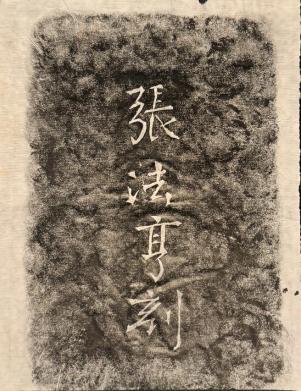 張法亨刻